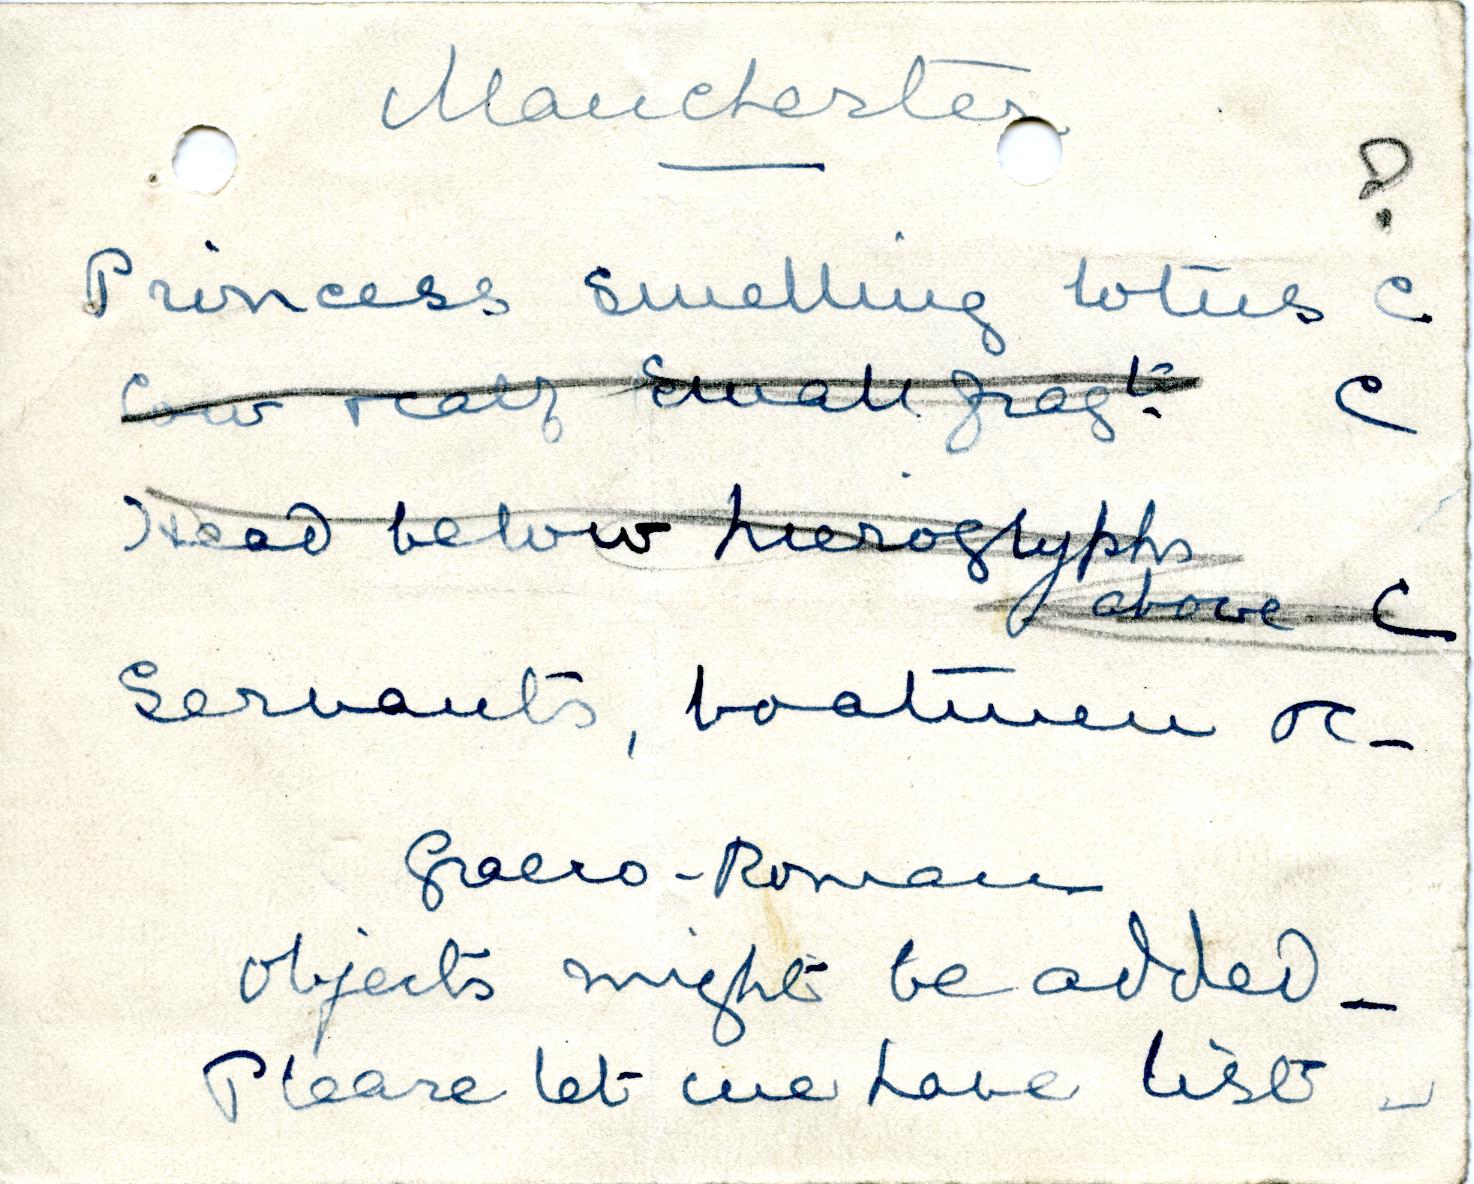 Manchester
?
Princess smelling lotus C
Cow & calf small fragt. C
Head below hieroglyphs
above C
Servants, boatmen &c -
Graeco-Roman
objects might be added -
Please let me have list -